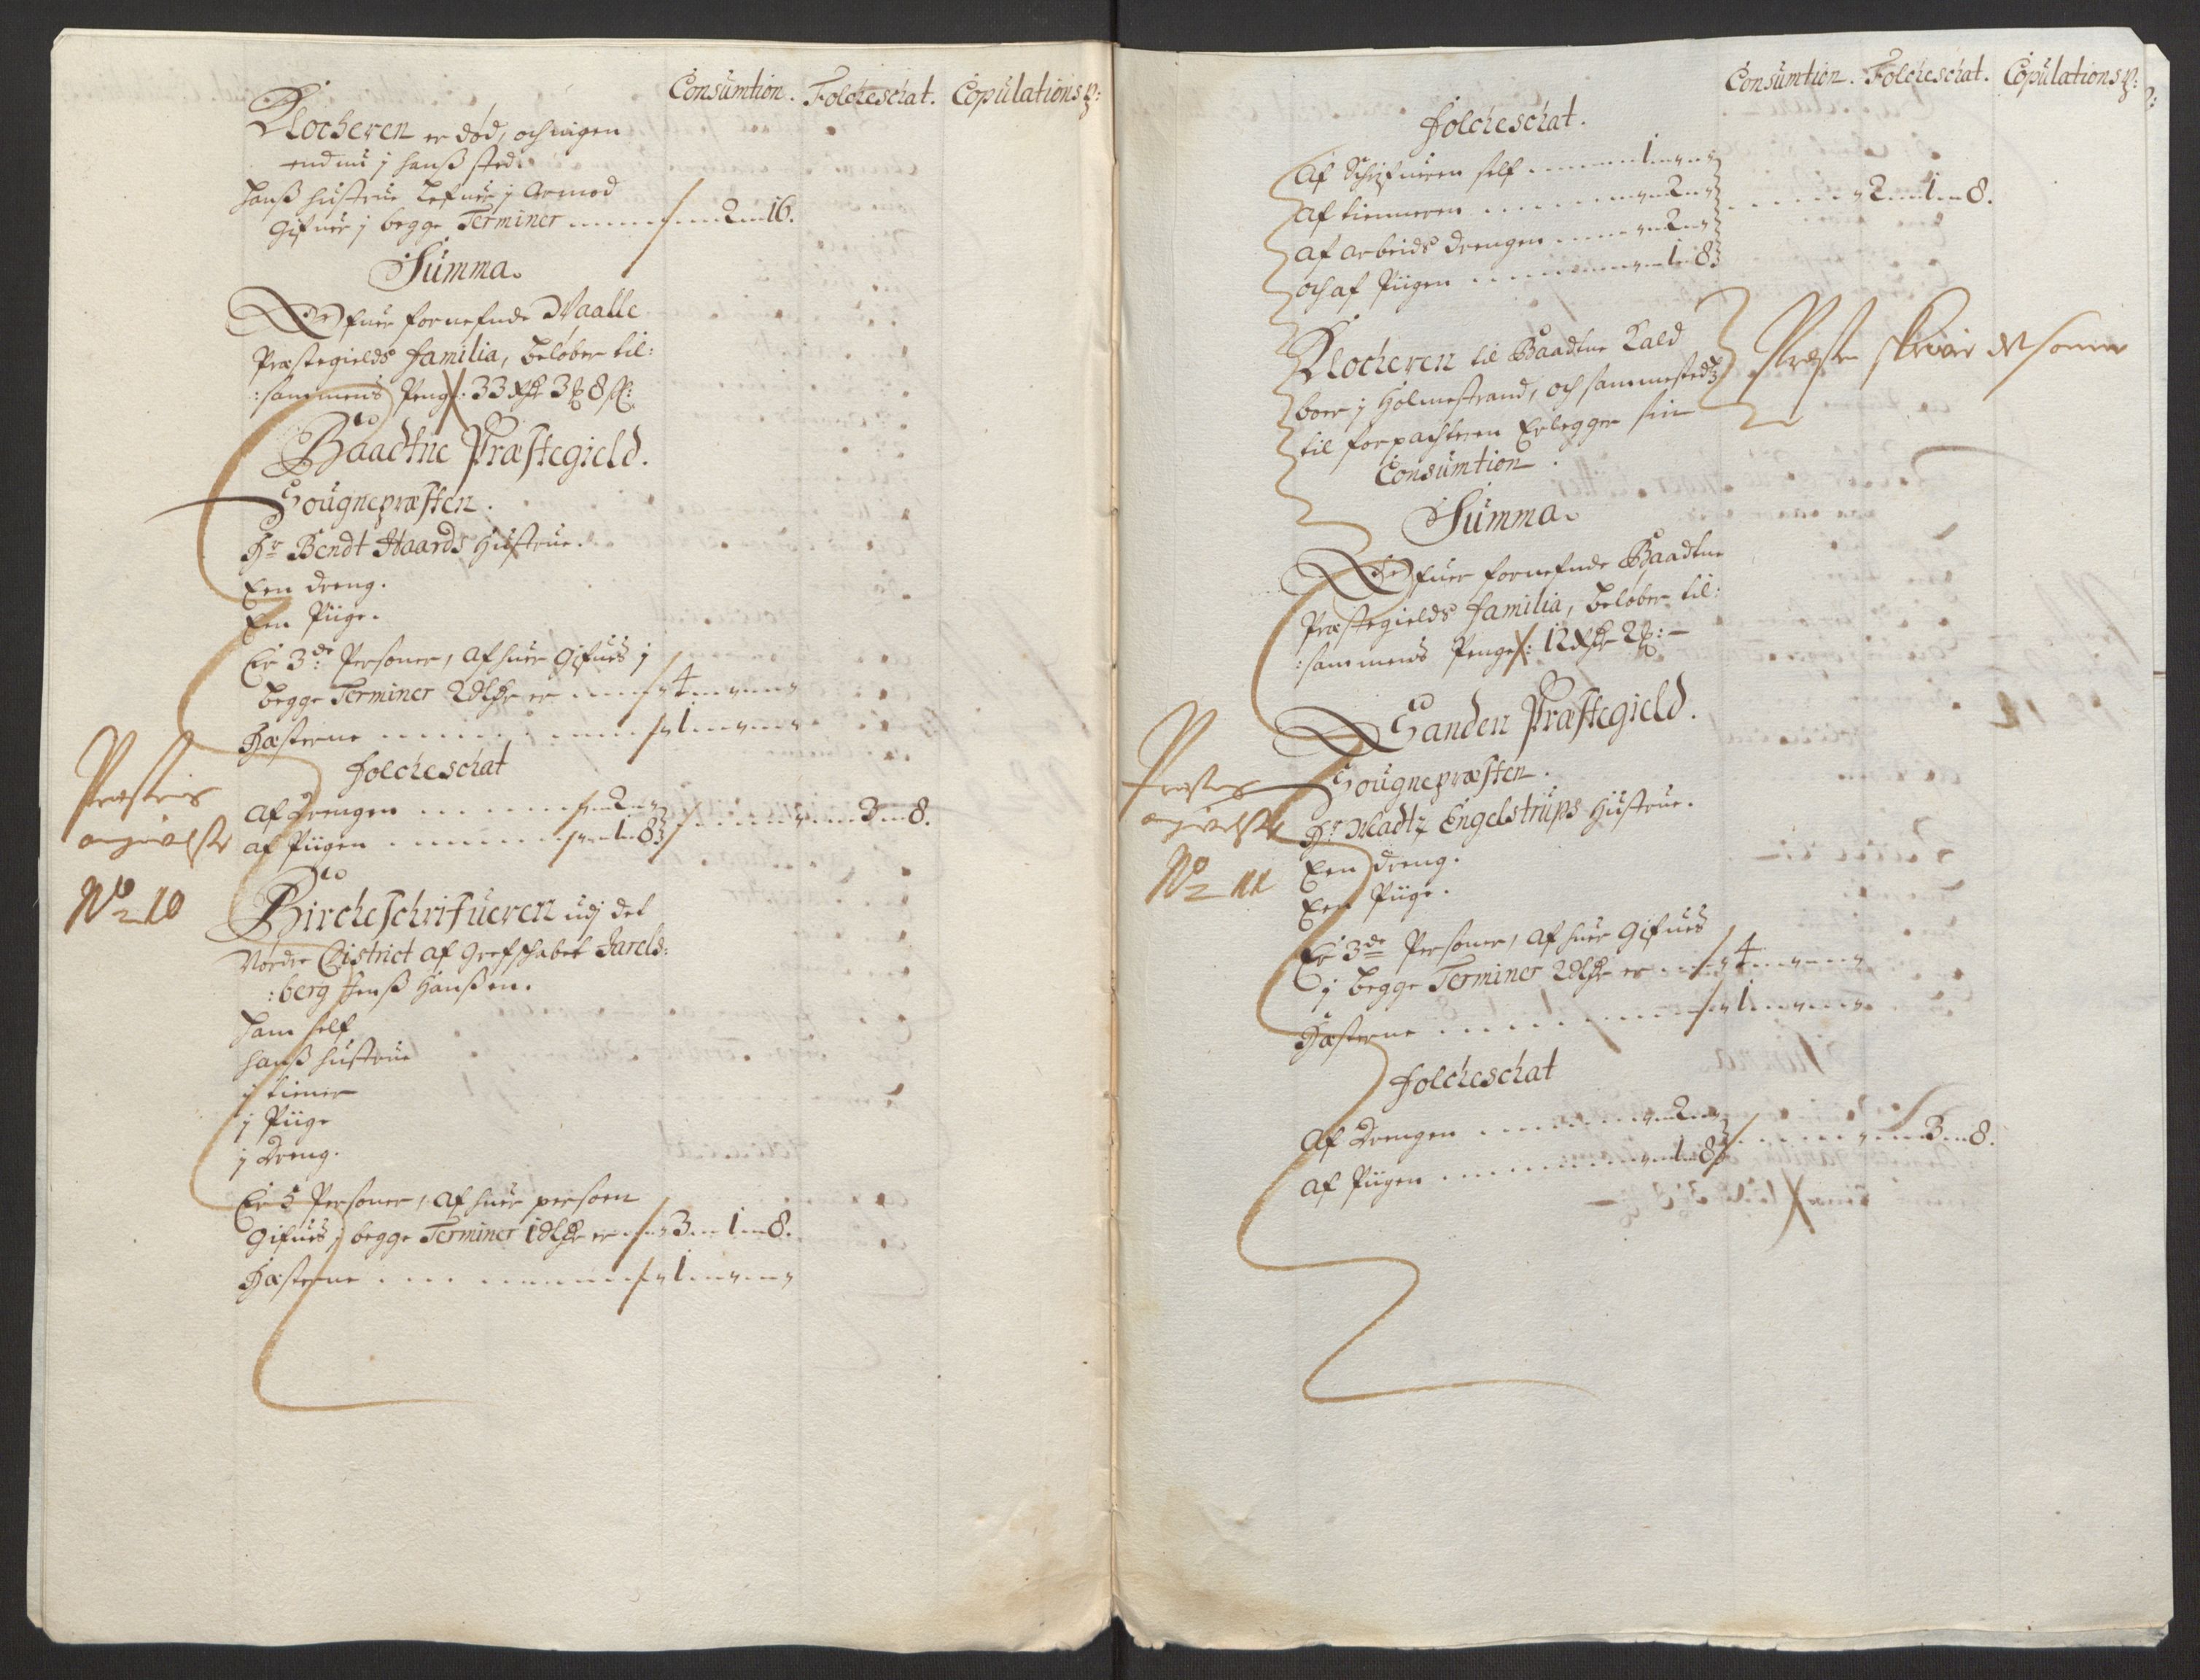 Consumtion. Folcheschat. Copulations p:
Klocheren er død, och ingen
endnu j hanß sted.
hanß hustrue lefuer j Armod
Gifuer j begge Terminer ...... 2 — 16.
Summa.
Ofuer fornefnde Waalle
Præstegields familia, beløber til:
:sammens Penge: 33 Rdr 3 8 ß:
Baadtne Præstegield.
Sougnepræsten.
Hr Bendt Haards Hustrue.
Een dreng.
Een Piige.
Er 3de Personer, af huer Gifues j
begge Terminer 2 dlr er ...... 4 „ „
Hæsterne ...... 1 „ „
Folcheschat
Af Drengen ...... „ 2 „
af Piigen ...... „ 1 8 ...... „ 3 8.
Præstens
angivelse
No 10
Bircheschrifueren udj det
Nordre District af Grefschabet Jarels:
:berg Jenß Hanßen.
Ham self
hanß hustrue
j tiener
j Piige
j Dreng.
Er 5 Personer, af huer person
Gifues j begge Terminer 1 dlr er „ 3 1 8.
Hæsterne ...... „ 1 „ „
Consumtion. Folcheschat. Copulations p:
Folcheschat.
Af Schrifueren self ...... 1 „ „
Af tienneren ...... „ 2 „
af arbeids drengen ...... „ 2 „
och af Piigen ...... „ 1 8 ...... 2 1 8.
Klocheren til Baadtne Kald
boer j Holmestrand, och sammestedtz
til forpachteren Erlegger sin
Consumtion.
Præsten skriver det samme
Summa.
Ofuer fornefnde Baadtne
Præstegields familia, beløber til:
:sammens Penge: 12 Rdr 2: —
Sanden Præstegield.
Sougnepræsten.
Hr Madtz Engelstrups Hustrue.
Een dreng.
Een Piige.
Præstens
angivelse
No 11
Er 3de Personer, af huer Gifues
j begge Terminer 2 dlr er ...... 4 „ „
Hæsterne ...... „ 1 „ „
Folcheschat
Af Drengen ...... „ 2 „
af Piigen ...... „ 1 8 ...... „ 3 8.